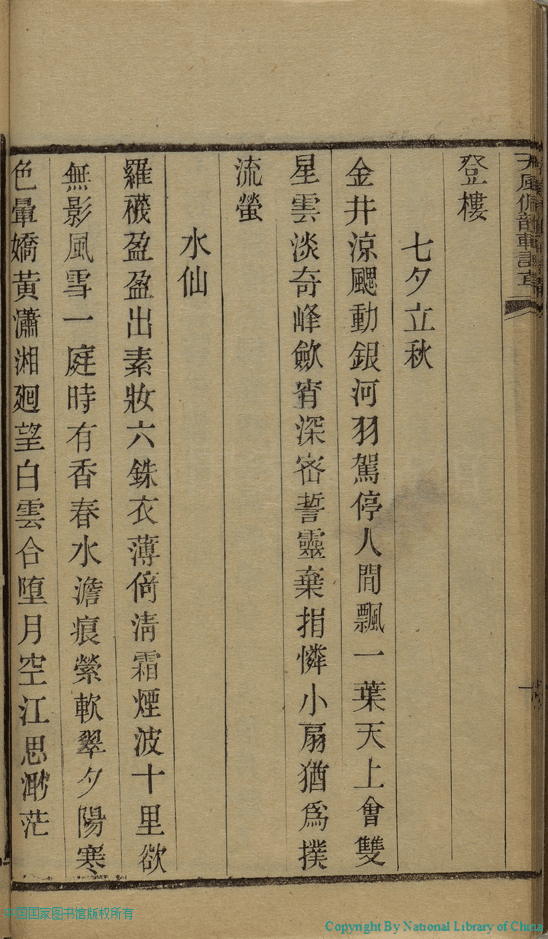 登樓
七夕立秋
金井涼颸動銀河羽駕停人間飄一葉天上會雙
星雲淡奇峰歛宵深密誓靈棄捐憐小扇猶爲撲
流螢
水仙
羅襪盈盈出素妝六銖衣薄倚淸霜煙波十里欲
無影風雪一庭時有香春水澹痕縈軟翠夕陽寒
色暈嬌黃瀟湘廻望白雲合墮月空江思渺茫
中国国家图书馆版权所有
Copyright By National Library of China